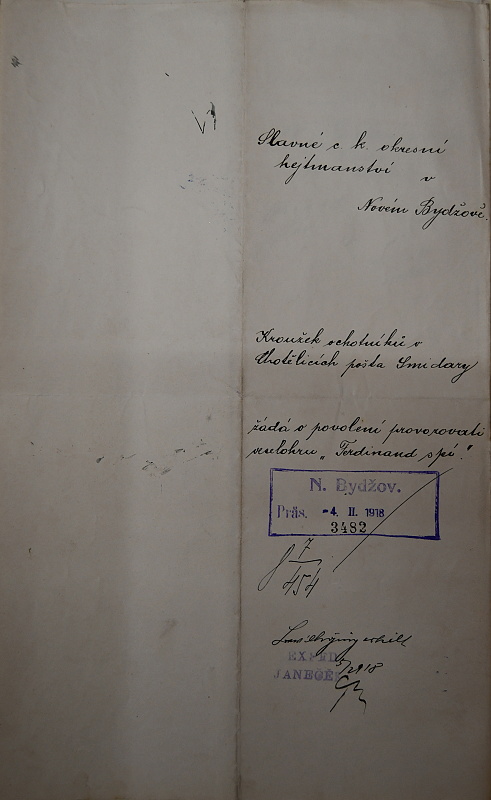 VI
Slavné c. k. okresní
hejtmanství
v
Novém Bydžově.
Kroužek ochotníků v
Chotělicích pošta Smidary
žádá o povolení provozovati
veselohru „Ferdinand spí."
N. Bydžov.
Präs. -4. II. 1918
3482
7
454
EXPED
JANEČE